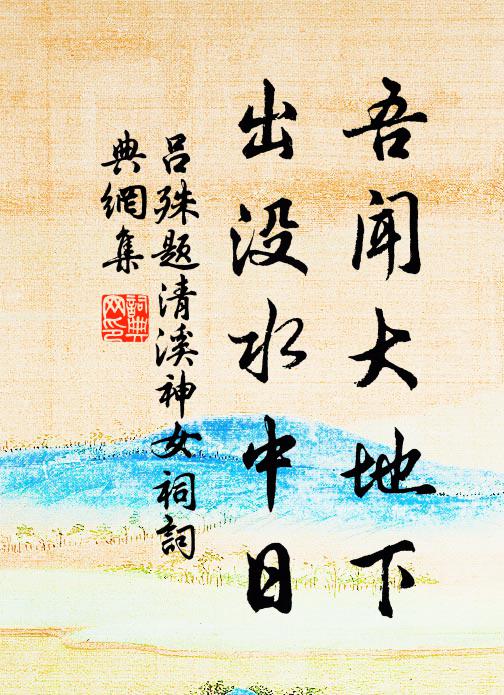 吾闻大地下
出没水中日
吕殊题清溪神女祠詞
典網集
詞典
网印